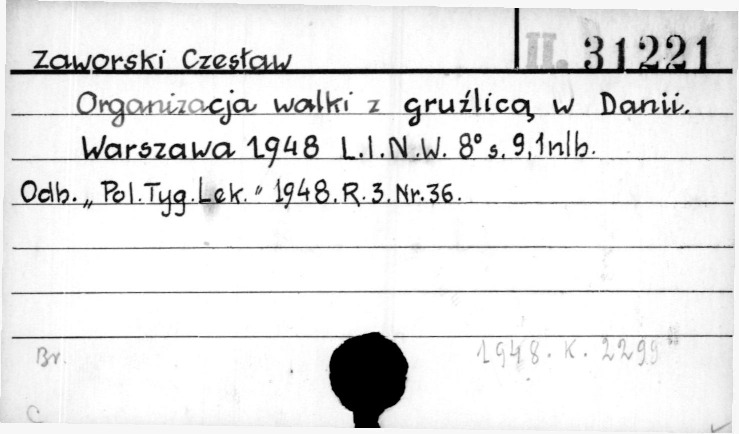 Zaworski Czesław II. 31221
Organizacja walki z gruźlicą w Danii.
Warszawa 1948 L.I.N.W. 8° s. 9, 1 nlb.
Odb. „Pol. Tyg. Lek." 1948. R. 3. Nr. 36.
Br. 1948. K. 2299
C